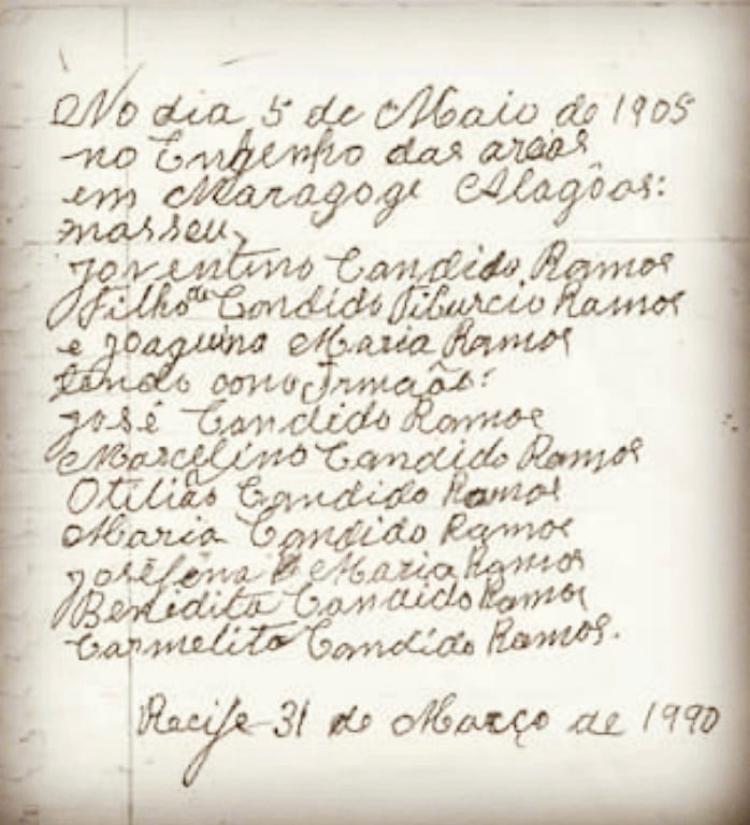 No dia 5 de Maio de 1905
no Engenho das areias
em Maragogi Alagôas:
nasseu,
Joventino Candido Ramos
Filho de Candido Tiburcio Ramos
e Joaquina Maria Ramos
tendo como Irmãos:
José Candido Ramos
Marcelino Candido Ramos
Otilião Candido Ramos
Maria Candido Ramos
Josefina Maria Ramos
Benidita Candido Ramos
Carmelita Candido Ramos.
Recife 31 de Março de 1990